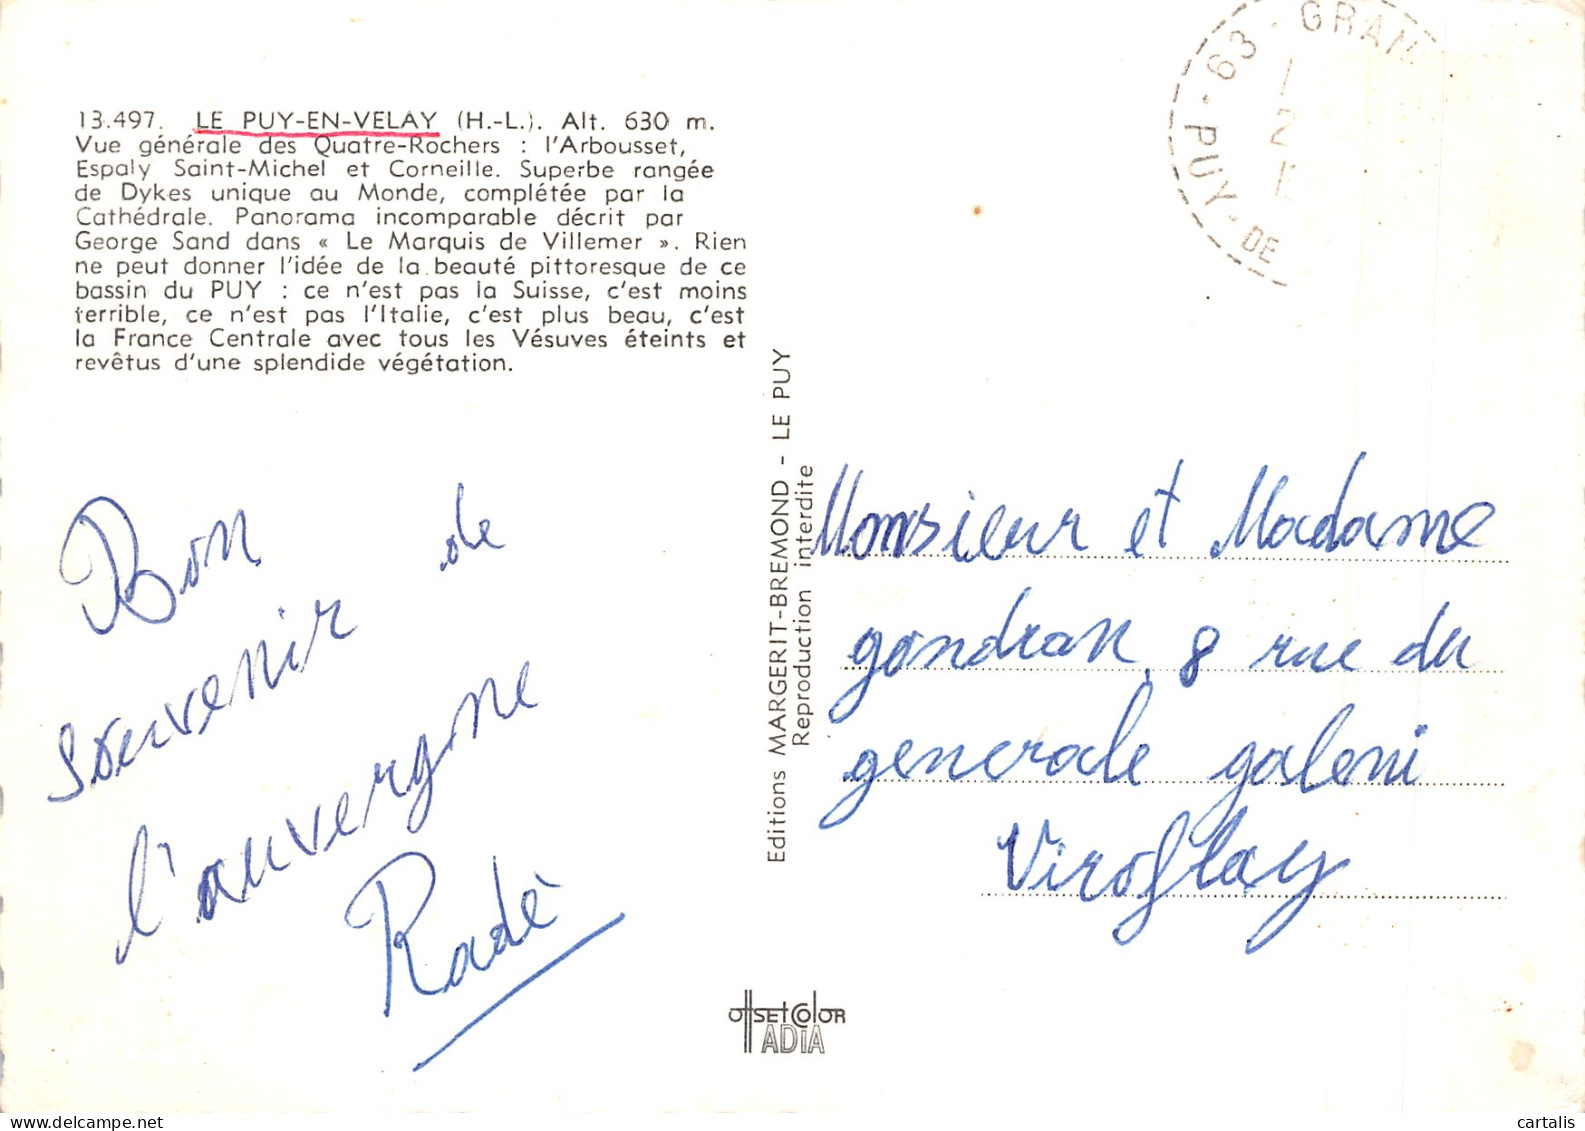 13.497. LE PUY-EN-VELAY (H.-L.). Alt. 630 m.
Vue générale des Quatre-Rochers : l'Arbousset,
Espaly Saint-Michel et Corneille. Superbe rangée
de Dykes unique au Monde, complétée par la
Cathédrale. Panorama incomparable décrit par
George Sand dans « Le Marquis de Villemer ». Rien
ne peut donner l'idée de la beauté pittoresque de ce
bassin du PUY : ce n'est pas la Suisse, c'est moins
terrible, ce n'est pas l'Italie, c'est plus beau, c'est
la France Centrale avec tous les Vésuves éteints et
revêtus d'une splendide végétation.
Bon
souvenir de
l'auvergne
Radè
Editions MARGERIT-BREMOND - LE PUY
Reproduction interdite
63 - GRAN
PUY-DE
Monsieur et Madame
gondran 8 rue du
generale galeni
Viroflay
offset color
ADIA
cartalis